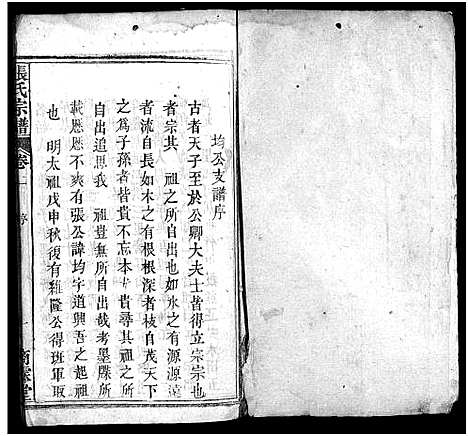 均公支譜序
古者天子至於公卿大夫士皆得立宗宗也
者宗其　祖之所自出也如水之有源源遠
者流自長如木之有根根深者枝自茂天下
之為子孫者皆貴不忘本卞貴尋其祖之所
自出追思我　祖豈無所自出哉考墨牒所
載愿愿不爽有張公諱均字道興吾之起祖
也　明太祖戊申秋復有維隆公得班軍取
張氏宗譜
卷一
序
一